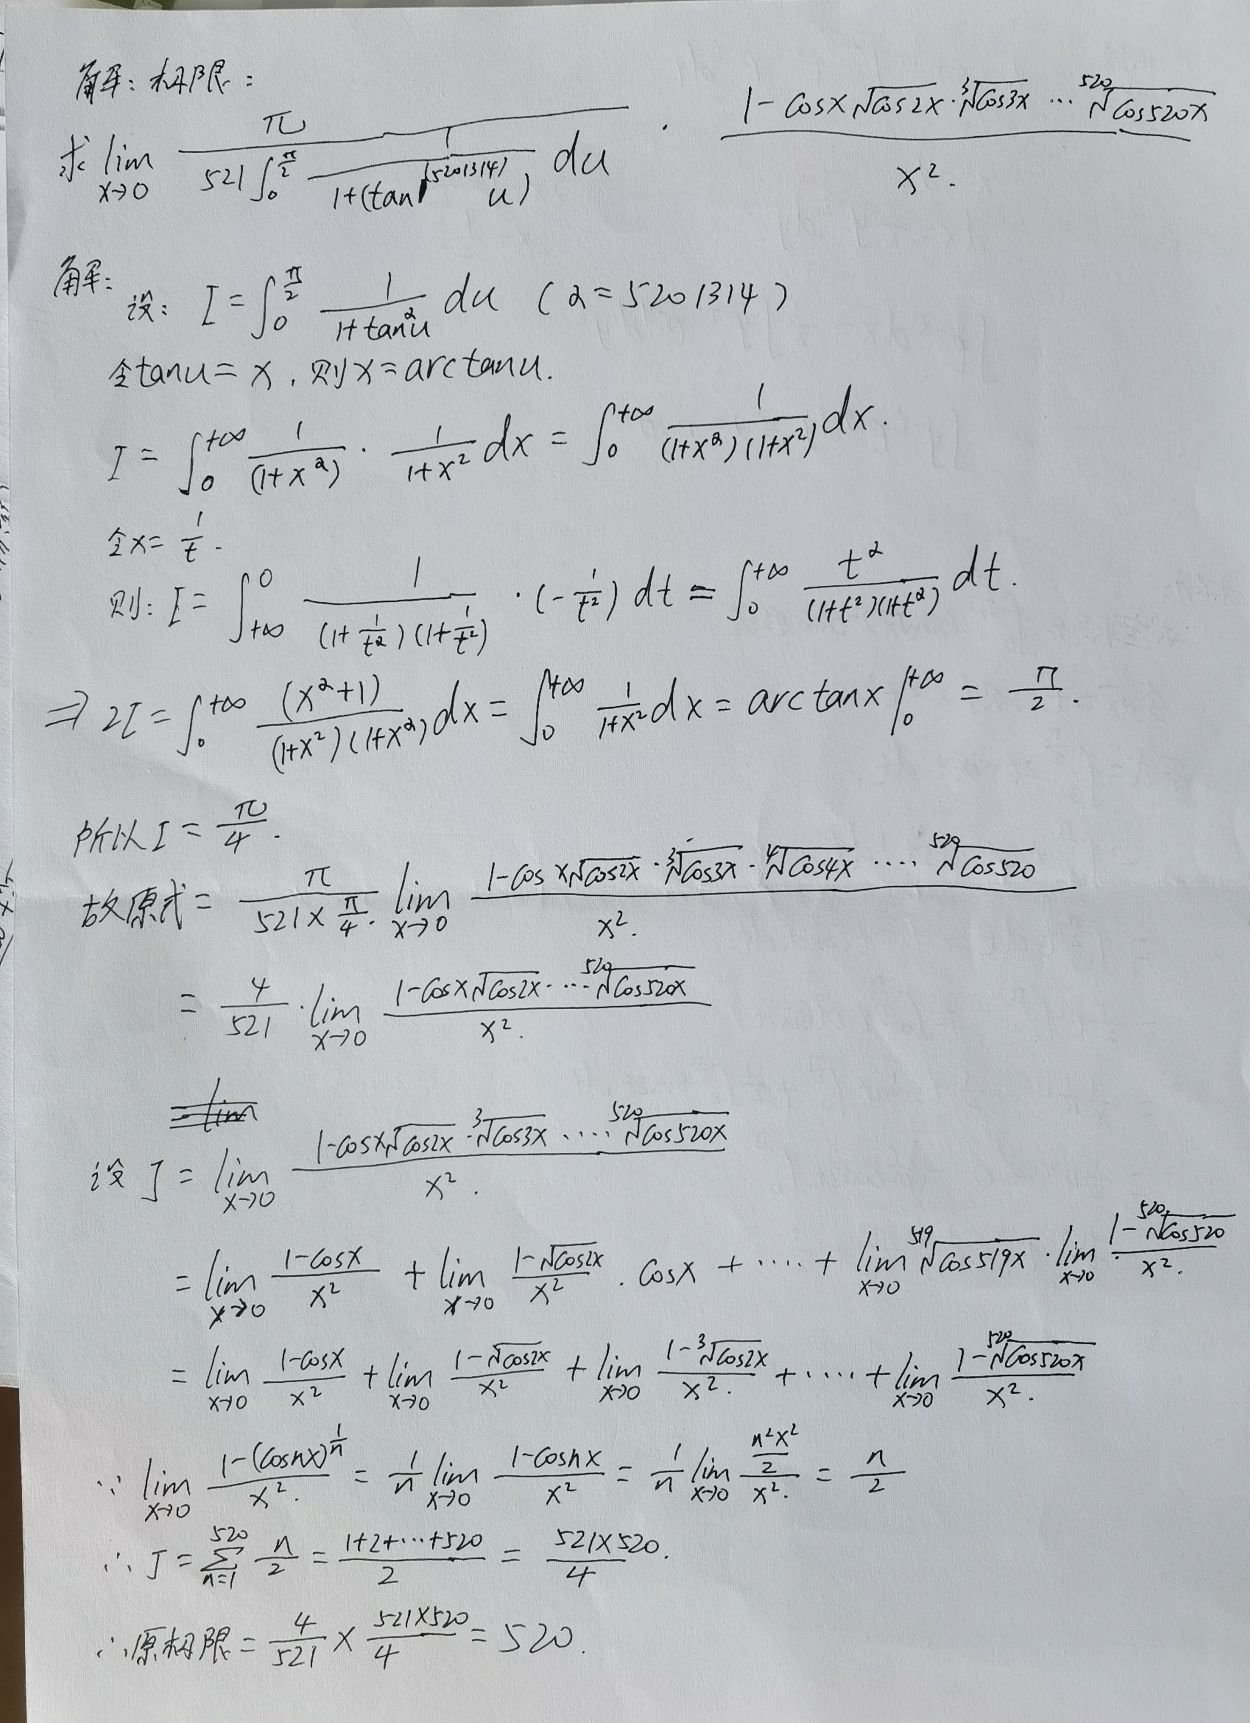 解:极限:
求 lim_{x→0} π / (521∫_0^{π/2} 1/(1+(tan u)^{(5201314)}) du) · (1-cosx√cos2x·∛cos3x…⁵²⁰√cos520x)/x².
解: 设: I=∫_0^{π/2} 1/(1+tan^α u) du (α=5201314)
令tanu=x, 则x=arctanu.
I=∫_0^{+∞} 1/(1+x^α) · 1/(1+x²) dx = ∫_0^{+∞} 1/((1+x^α)(1+x²)) dx.
令x=1/t.
则: I=∫_{+∞}^0 1/((1+1/t^α)(1+1/t²)) ·(-1/t²) dt = ∫_0^{+∞} t^α/((1+t²)(1+t^α)) dt.
⇒ 2I=∫_0^{+∞} (x^α+1)/((1+x²)(1+x^α)) dx = ∫_0^{+∞} 1/(1+x²) dx = arctanx|_0^{+∞} = π/2.
所以I=π/4.
故原式= π/(521×π/4.) lim_{x→0} (1-cosx√cos2x·∛cos3x·⁴√cos4x….⁵²⁰√cos520)/x².
= 4/521·lim_{x→0} (1-cosx√cos2x·…⁵²⁰√cos520x)/x².
设 J=lim_{x→0} (1-cosx√cos2x·∛cos3x….⁵²⁰√cos520x)/x².
=lim_{x→0} (1-cosx)/x² + lim_{x→0} (1-√cos2x)/x² . cosx+….+lim_{x→0} ⁵¹⁹√cos519x·lim_{x→0} (1-⁵²⁰√cos520)/x².
=lim_{x→0} (1-cosx)/x² + lim_{x→0} (1-√cos2x)/x² + lim_{x→0} (1-∛cos2x)/x². +….+lim_{x→0} (1-⁵²⁰√cos520x)/x².
∵ lim_{x→0} (1-(cosnx)^{1/n})/x². = 1/n lim_{x→0} (1-cosnx)/x² = 1/n lim_{x→0} (n²x²/2)/x². = n/2
∴ J=∑_{n=1}^{520} n/2 = (1+2+…+520)/2 = 521×520/4.
∴原极限= 4/521 × 521×520/4 = 520.